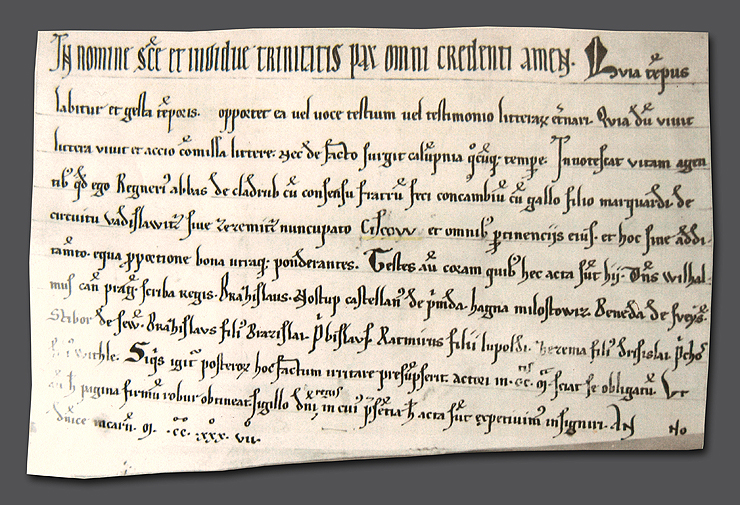 IN nomine sce et indidue trinitatis pax omni credenti amen. Quia tēpus
labitur et gesta tēporis. opportet ea uel uoce testium uel testimonio litterarꝝ et̄nari. Quia dū viuit
littera viuit et accio cōmissa littere. nec de facto surgit calūpnia qͦcūqꝫ tempore. Innotescat vitam agen
tibꝰ qd ego Regnerꝰ abbas de cladrub cū consensu fratrū feci concambiū cū gallo filio marquardi de
circuitu vadislawitz siue zezemitz nuncupato Ciscow et omnibꝰ ꝑtinencijs eiusͤ. et hoc sine addi
tamto. equa ꝓporcione bona utraqꝫ ponderantes. Testes aū coram quibꝰ hec acta sūt hij. Dn̄s wilhal
mus can̄ prag. scriba regis. Brathislaus. Nostup castellanꝰ de pimda. hagna milostowiz. Beneda de
Stibor de Brathislavs filiꝰ Brazislai. Pbislaus. Ratmirus filii lupoldi. filiꝰ
withle. Siqs igit posterorꝝ hoc factum irritare presūpserit. actori in .cc. sciat se obligatū. Ut
aū h pagina firmiꝰ robur obtineat. sigillo dnī regis in cuiꝰ psētia h acta sūt insigniri. AN NO
dnīce incarn. M. cc. xxx. vii.